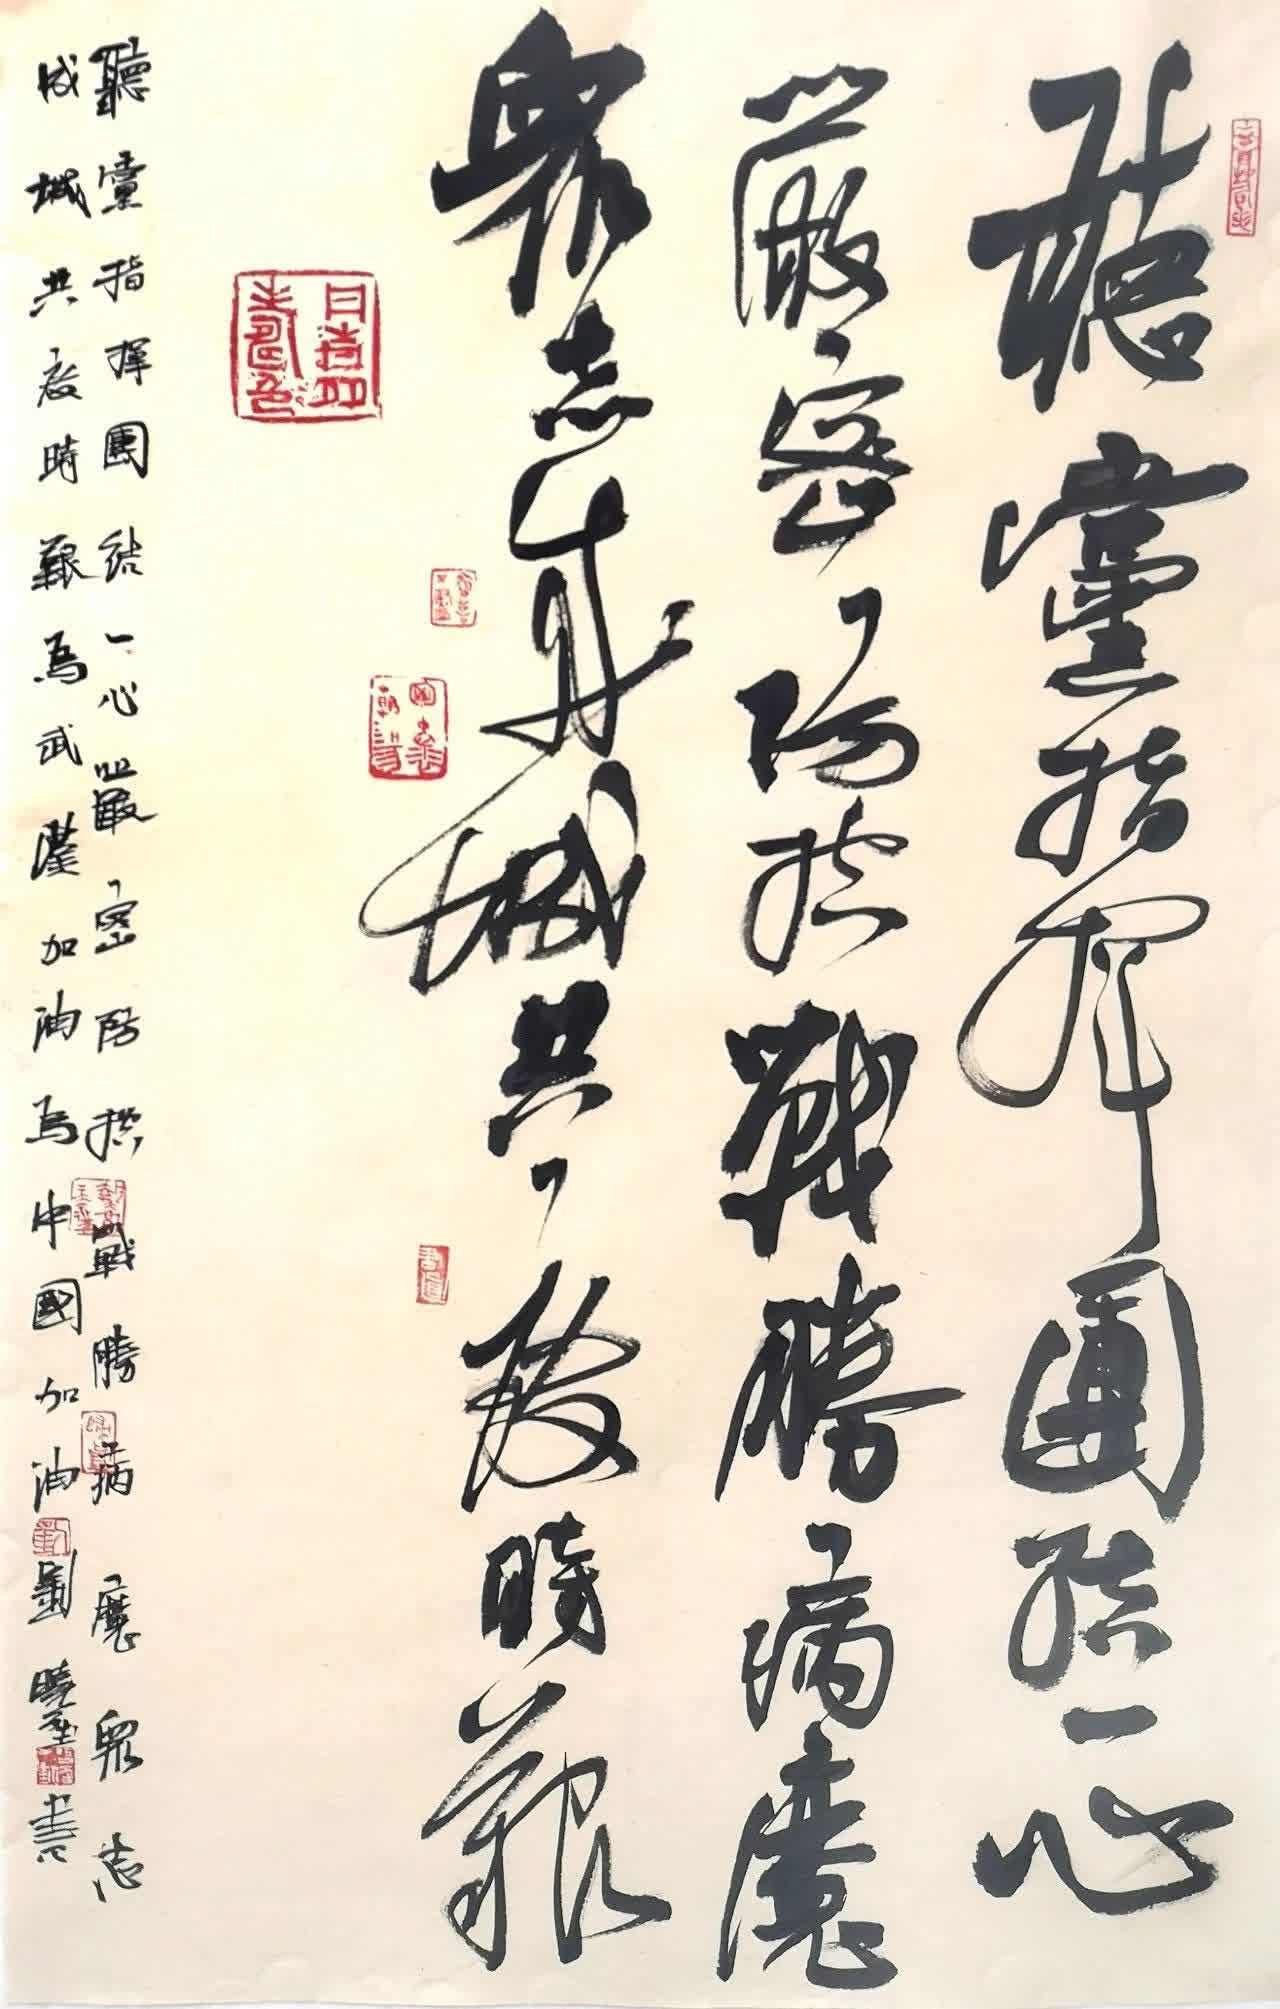 聽黨指揮團結一心
嚴密防控戰勝病魔
眾志成城共度時艱
聽黨指揮團結一心嚴密防控戰勝病魔眾志
成城共度時艱為武漢加油為中國加油劉曉書